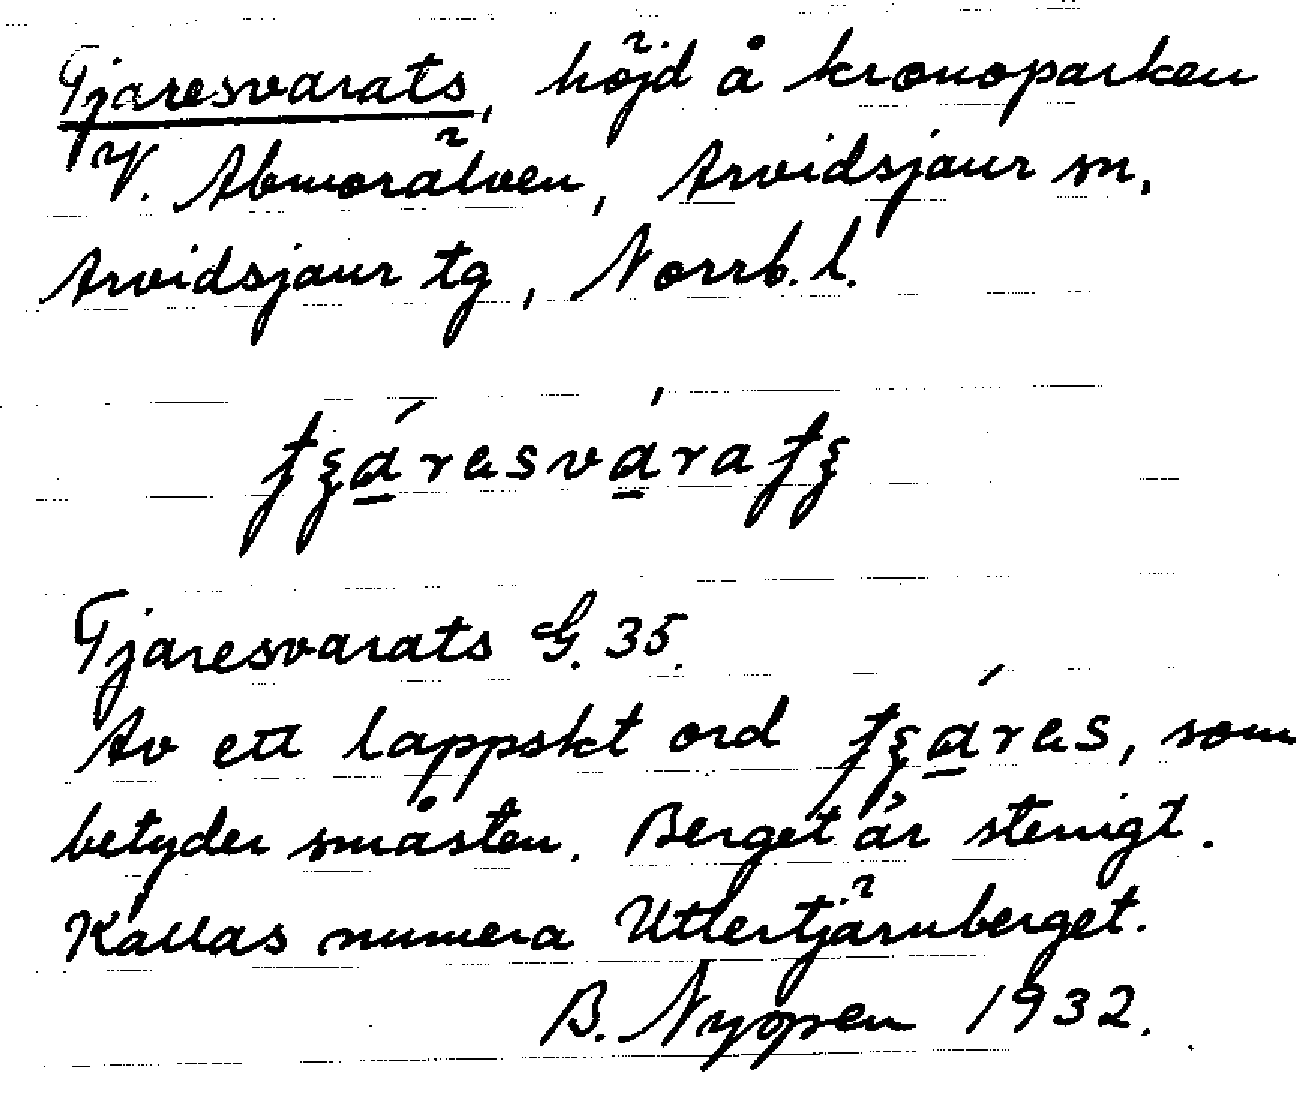 Tjaresvarats, höjd å kronoparken
V. Abmorälven, Arvidsjaur sn,
Arvidsjaur tg, Norrb. l.
Tjaresvarats G. 35.
Av ett lappskt ord som
betyder småsten. Berget är stenigt.
Kallas numera Uttertjärnberget.
B. Nyopen 1932.